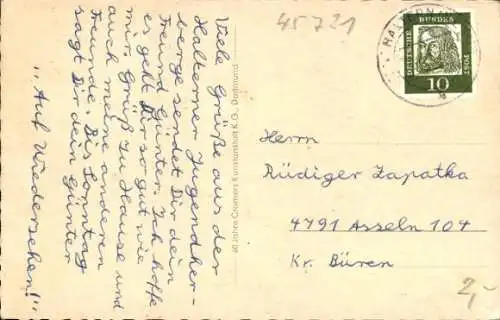 Viele Grüße aus der
Halterner Jugendher-
berge sendet Dir dein
Freund Günter. Ich hoffe
es geht Dir so gut wie
mir. Grüß zu Hause und
auch meine anderen
Freunde. Bis Sonntag
sagt Dir dein Günter
„Auf Wiedersehen!"
40 Jahre Cramers Kunstanstalt K.G., Dortmund
45721
HALTERN
DEUTSCHE
BUNDES
POST
10
Herrn
Rüdiger Zapatka
4791 Asseln 104
Kr. Büren
2,-